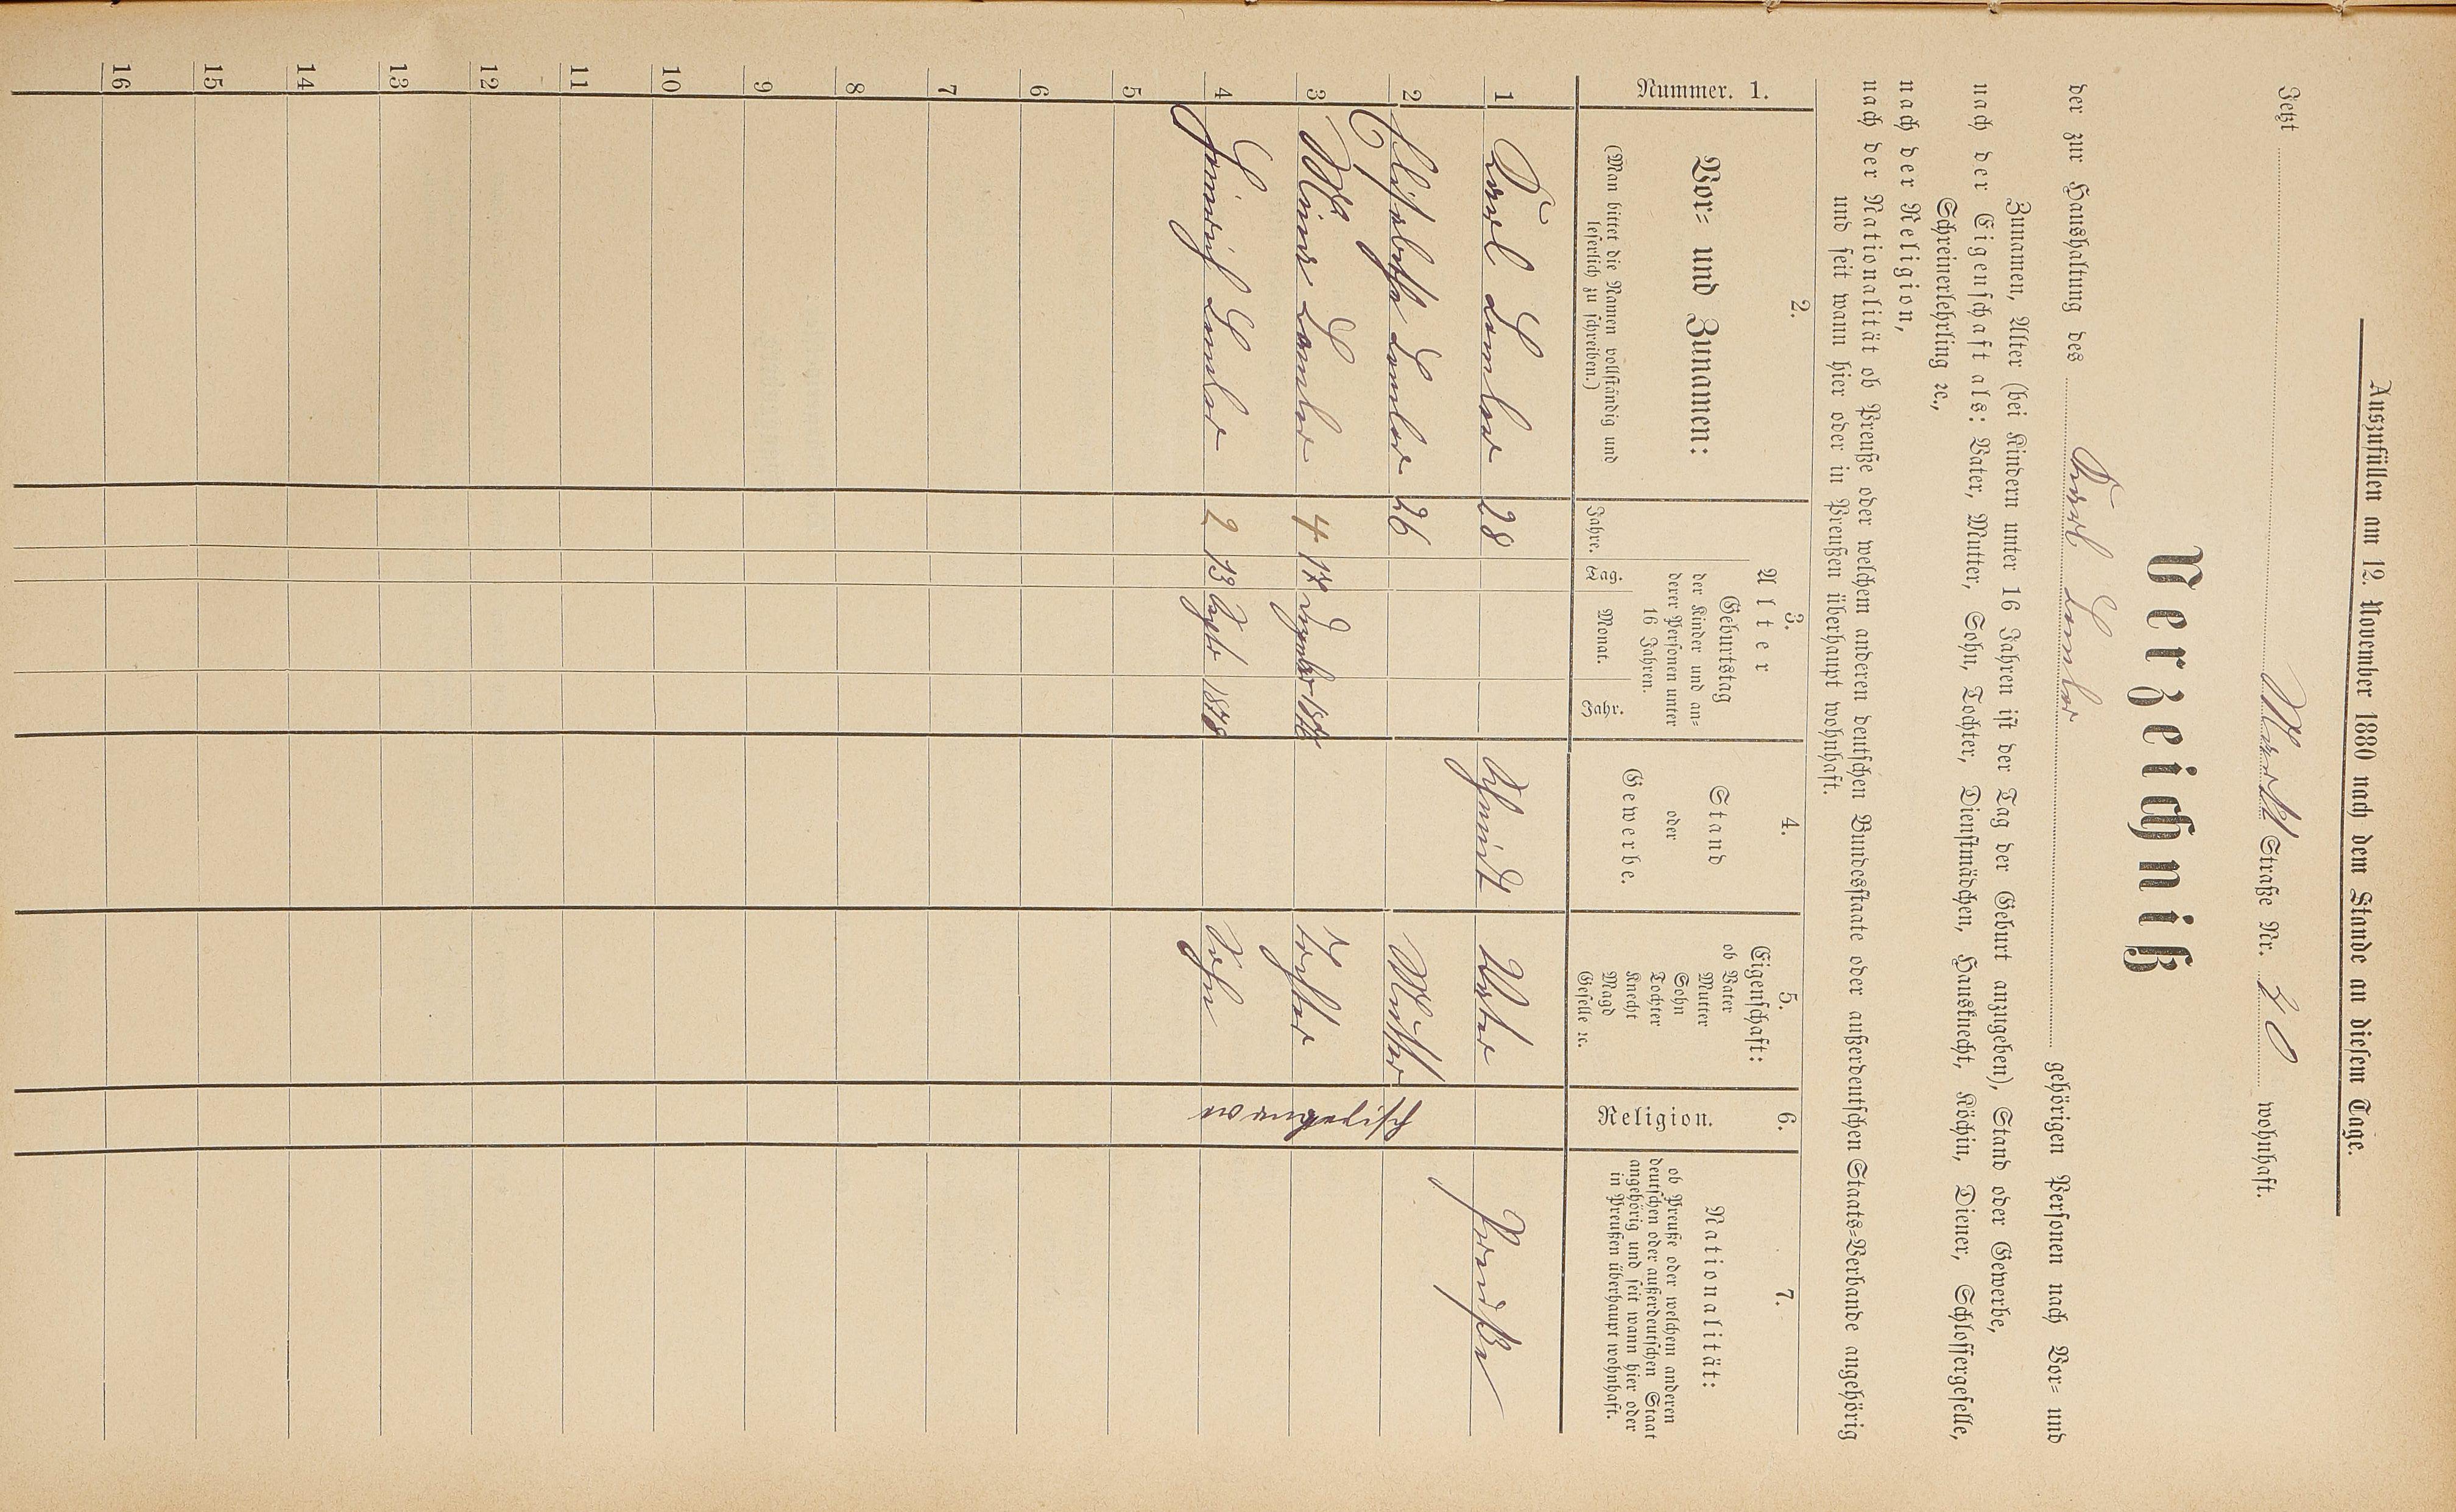 Auszufüllen am 12. November 1880 nach dem Stande an diesem Tage.
Jetzt Markt Straße Nr. 20 wohnhaft.
Verzeichniß
der zur Haushaltung des Karl gehörigen Personen nach Vor- und
Zunamen, Alter (bei Kindern unter 16 Jahren ist der Tag der Geburt anzugeben), Stand oder Gewerbe,
nach der Eigenschaft als: Vater, Mutter, Sohn, Tochter, Dienstmädchen, Hausknecht, Köchin, Diener, Schlossergeselle,
Schreinerlehrling ꝛc.,
nach der Religion,
nach der Nationalität ob Preuße oder welchem anderen deutschen Bundesstaate oder außerdeutschen Staats-Verbande angehörig
und seit wann hier oder in Preußen überhaupt wohnhaft.
Nummer. 1.
2.
Vor- und Zunamen:
(Man bittet die Namen vollständig und
leserlich zu schreiben.)
3.
Alter
Jahre.
Geburtstag
der Kinder und an-
derer Personen unter
16 Jahren.
Tag. Monat. Jahr.
4.
Stand
oder
Gewerbe.
5.
Eigenschaft:
ob Vater
Mutter
Sohn
Tochter
Knecht
Magd
Geselle ꝛc.
6.
Religion.
7.
Nationalität:
ob Preuße oder welchem anderen
deutschen oder außerdeutschen Staat
angehörig und seit wann hier oder
in Preußen überhaupt wohnhaft.
1 Karl 28 Vater Preuße
2 Elisabethe 26 Mutter
3 Mina 4 17 1876 Tochter
4 Heinrich 2 13 1878 Sohn
5
6
7
8
9
10
11
12
13
14
15
16